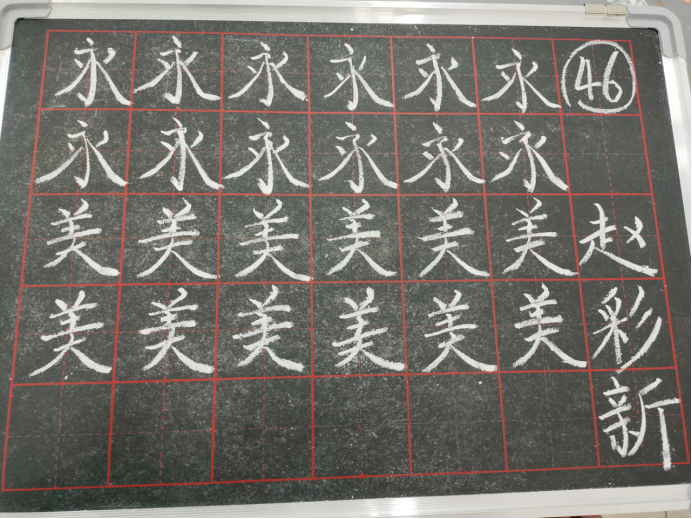 永永永永永永㊻
永永永永永永
美美美美美美赵
美美美美美美彩
新